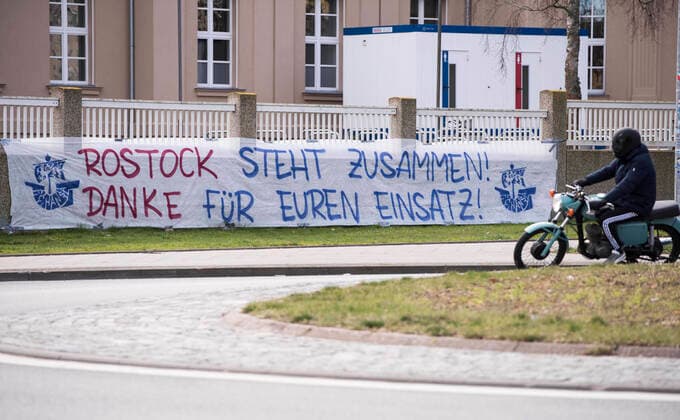 ROSTOCK STEHT ZUSAMMEN!
DANKE FÜR EUREN EINSATZ!